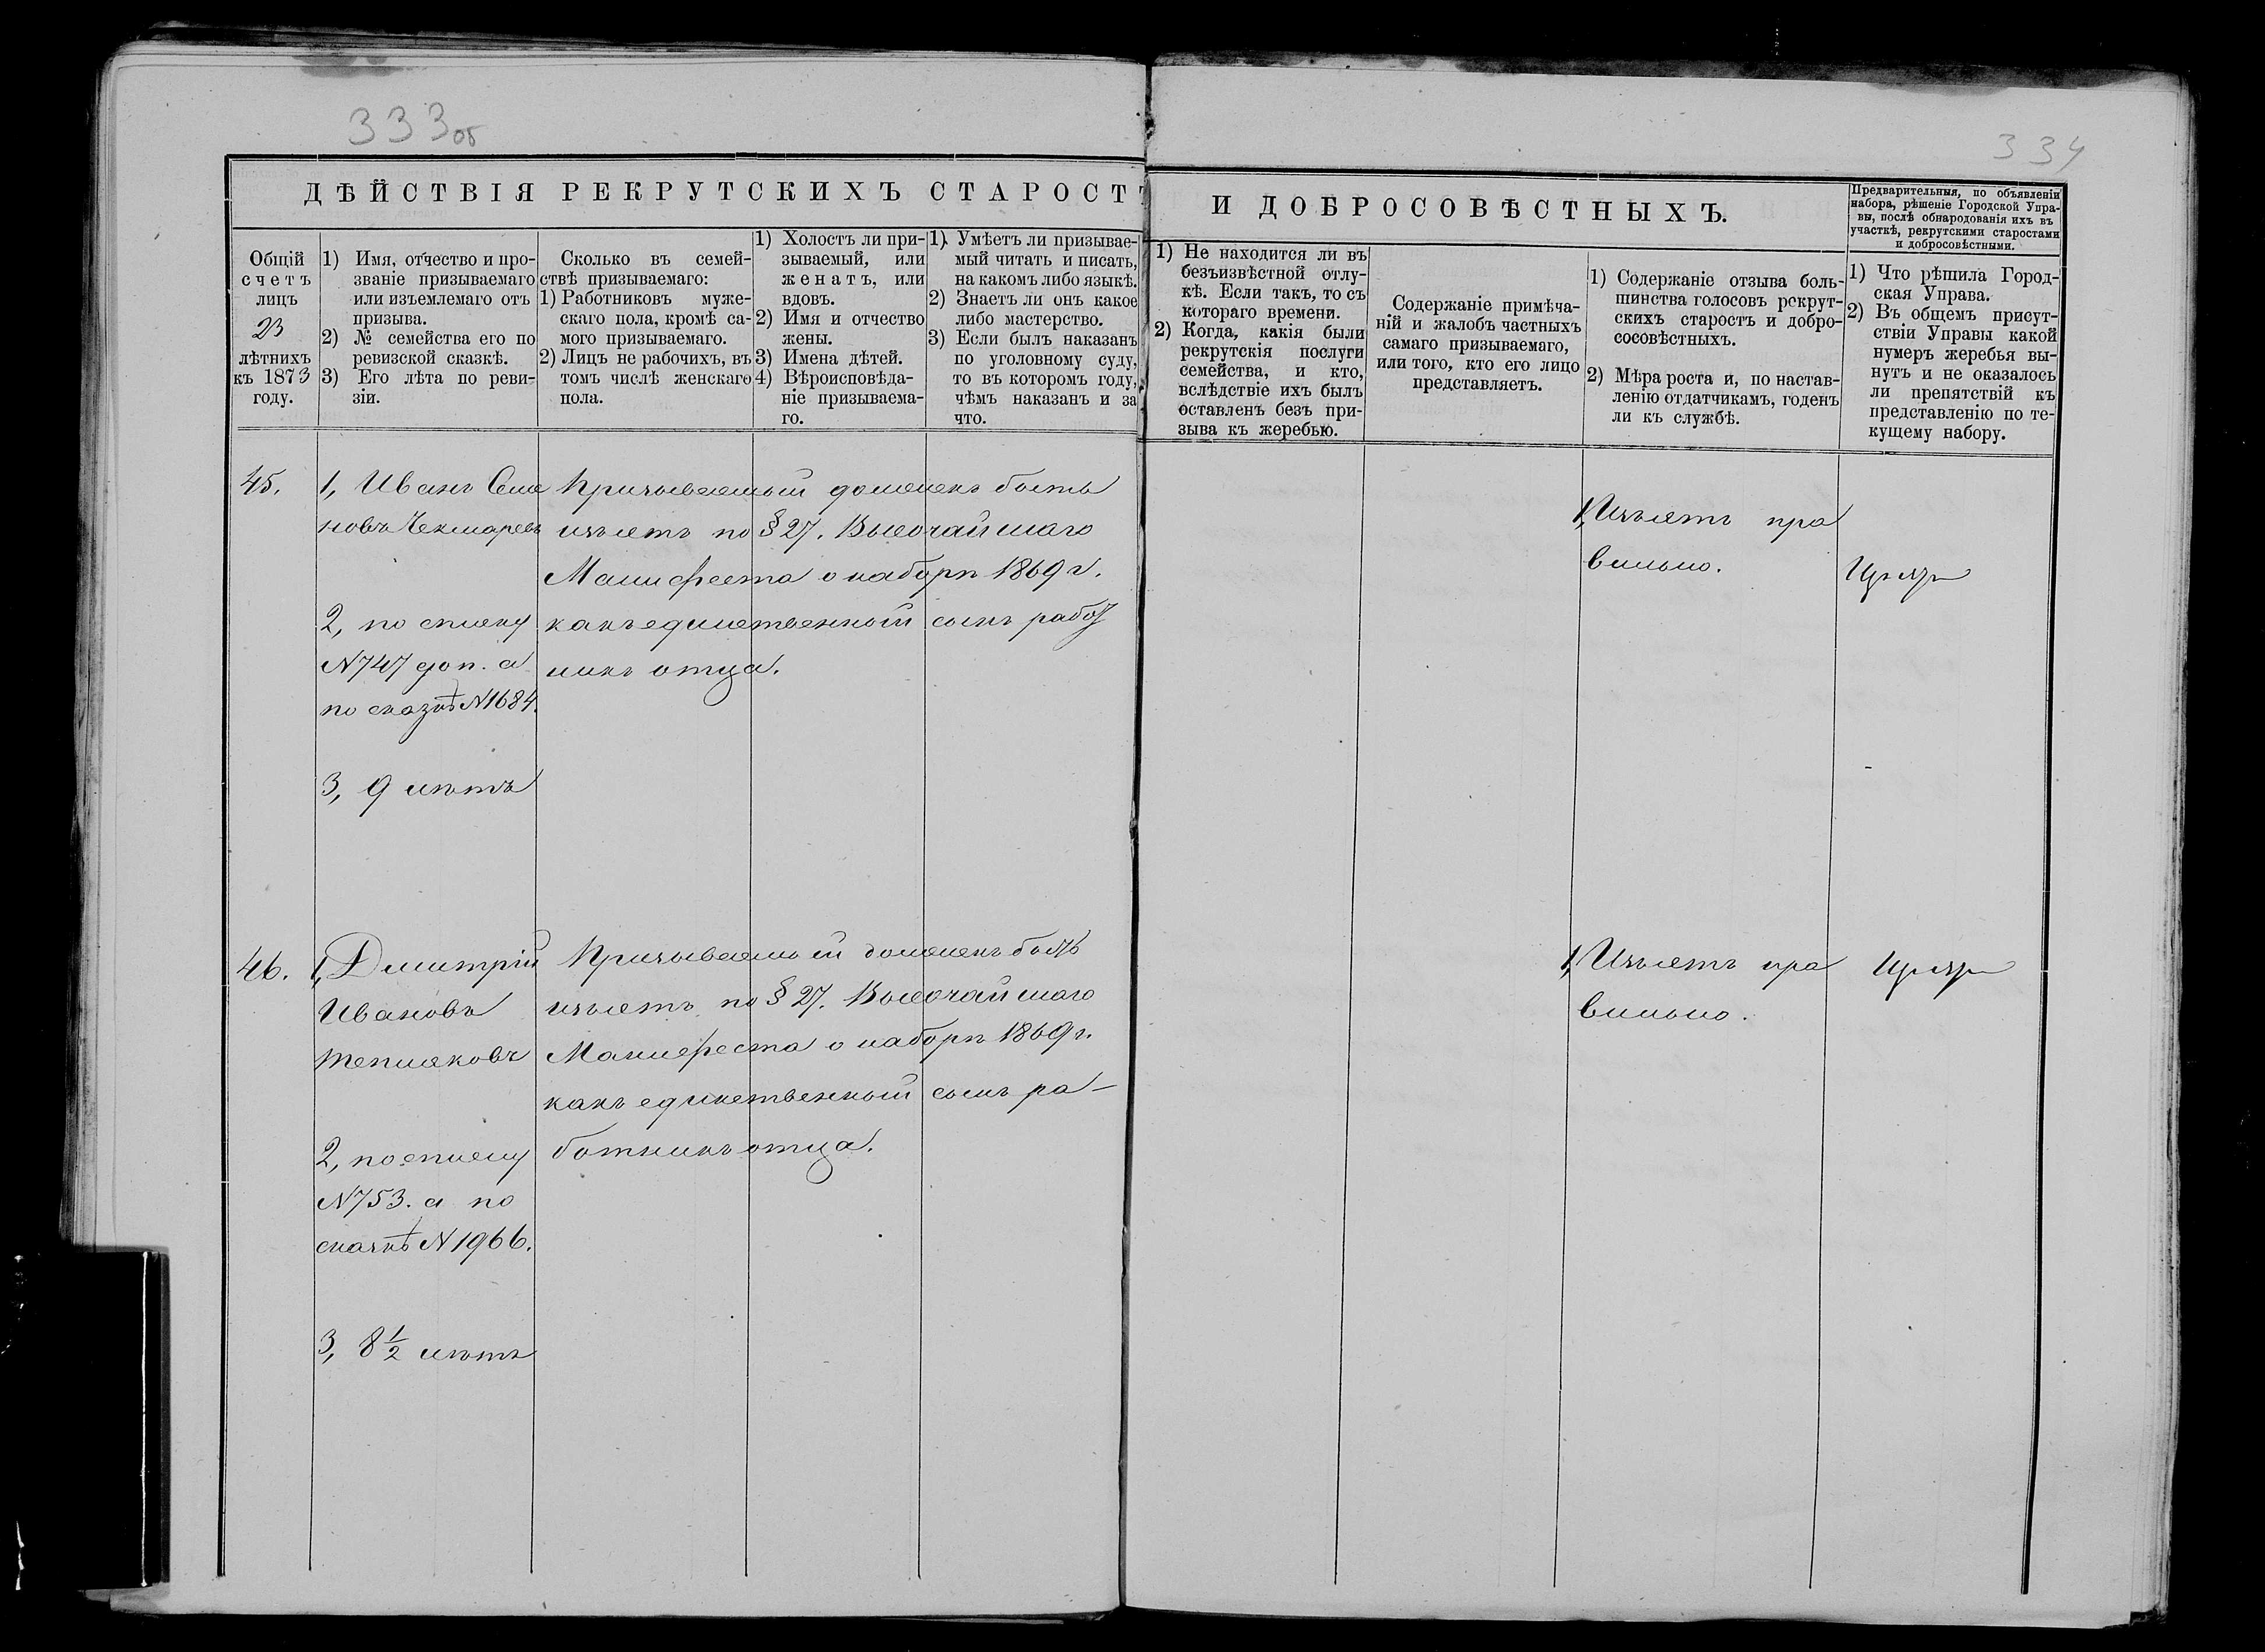 333об
334
ДѢЙСТВІЯ РЕКРУТСКИХЪ СТАРОСТЪ
И ДОБРОСОВѢСТНЫХЪ.
Предварительныя, по объявленіи
набора, рѣшеніе Городской Упра-
вы, послѣ обнародованія ихъ въ
участкѣ, рекрутскими старостами
и добросовѣстными.
Общій
счетъ
лицъ
23
лѣтнихъ
къ 1873
году.
1) Имя, отчество и про-
званіе призываемаго
или изъемлемаго отъ
призыва.
2) № семейства его по
ревизской сказкѣ.
3) Его лѣта по реви-
зіи.
Сколько въ семей-
ствѣ призываемаго:
1) Работниковъ муже-
скаго пола, кромѣ са-
мого призываемаго.
2) Лицъ не рабочихъ, въ
томъ числѣ женскаго
пола.
1) Холостъ ли при-
зываемый, или
женатъ, или
вдовъ.
2) Имя и отчество
жены.
3) Имена дѣтей.
4) Вѣроисповѣда-
ніе призываема-
го.
1) Умѣетъ ли призывае-
мый читать и писать,
на какомъ либо языкѣ.
2) Знаетъ ли онъ какое
либо мастерство.
3) Если былъ наказанъ
по уголовному суду,
то въ которомъ году,
чѣмъ наказанъ и за
что.
1) Не находится ли въ
безъизвѣстной отлу-
кѣ. Если такъ, то съ
котораго времени.
2) Когда, какія были
рекрутскія послуги
семейства, и кто,
вслѣдствіе ихъ былъ
оставленъ безъ при-
зыва къ жеребью.
Содержаніе примѣча-
ній и жалобъ частныхъ
самаго призываемаго,
или того, кто его лицо
представляетъ.
1) Содержаніе отзыва боль-
шинства голосовъ рекрут-
скихъ старостъ и добро-
сосовѣстныхъ.
2) Мѣра роста и, по настав-
ленію отдатчикамъ, годенъ
ли къ службѣ.
1) Что рѣшила Город-
ская Управа.
2) Въ общемъ присут-
ствіи Управы какой
нумеръ жеребья вы-
нутъ и не оказалось
ли препятствій къ
представленію по те-
кущему набору.
45.
1, Иванъ Семе
новъ Чекмаревъ
2, по списку
N747 доп. а
по сказкѣ N1684.
3, 9 лѣтъ
Призываемый долженъ быть
изъятъ по § 27. Высочайшаго
Манифеста о наборѣ 1869 г.
какъ единственный сынъ работ
никъ отца.
1, Изъятъ пра
вильно.
46.
1, Дмитрій
Ивановъ
Тепляковъ
2, по списку
N753. а по
сказкѣ N1966.
3, 8 1/2 лѣтъ
Призываемый долженъ быть
изъятъ по § 27. Высочайшаго
Манифеста о наборѣ 1869 г.
какъ единственный сынъ ра-
ботникъ отца.
1, Изъятъ пра
вильно.